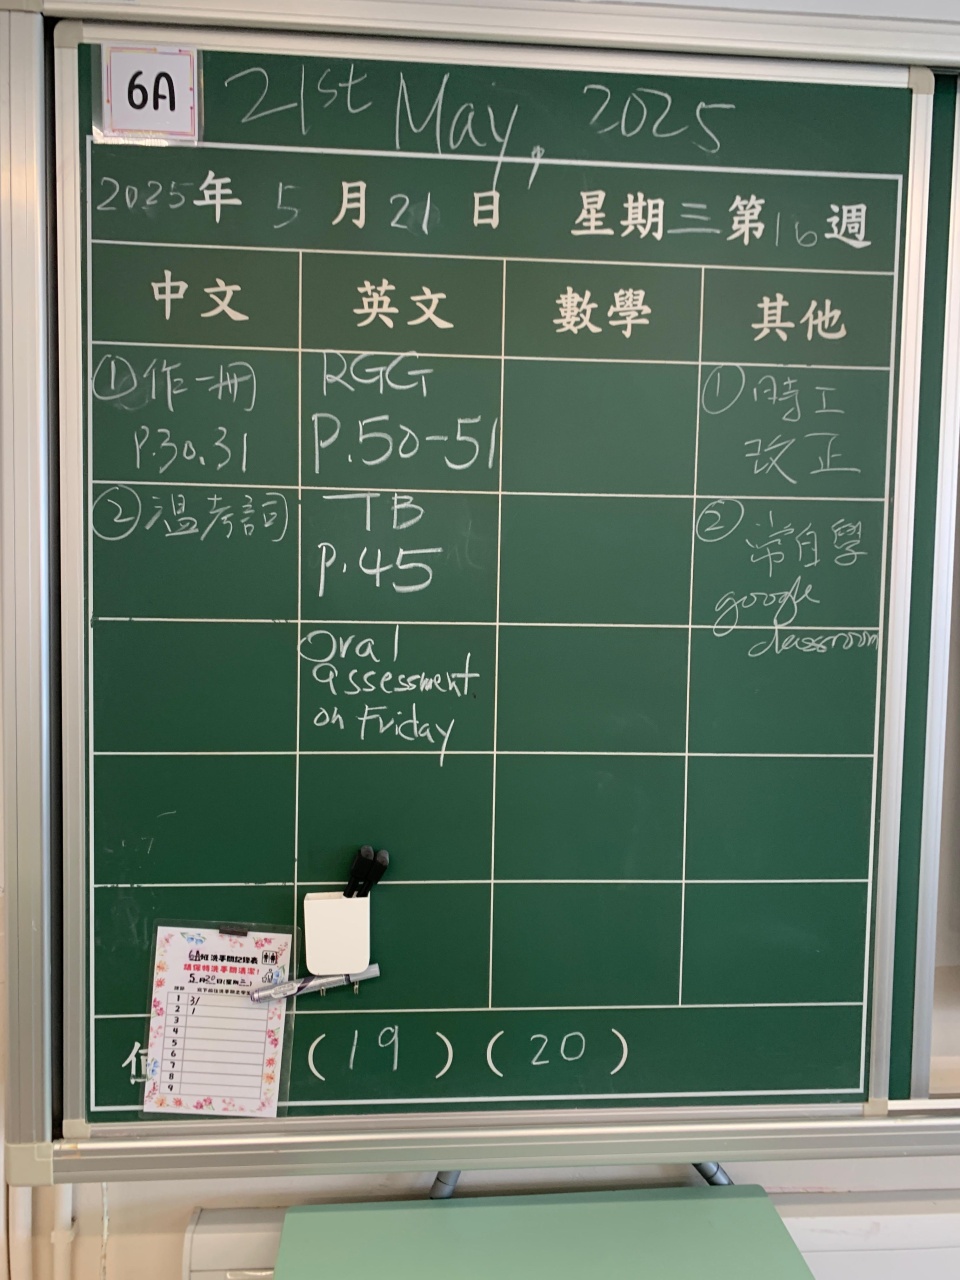 6A
21st May, 2025
2025年 5月21日 星期三第16週
中文 英文 數學 其他
①作一冊
P.30,31
②溫考詞
RGG
P.50-51
TB
P.45
Oral
assessment
on Friday
①時工
改正
②常自學
google
classroom
6A班洗手間記錄表
請保持洗手間清潔!
5月20日(星期二)
1 31
2 1
3
4
5
6
7
8
9
(19) (20)